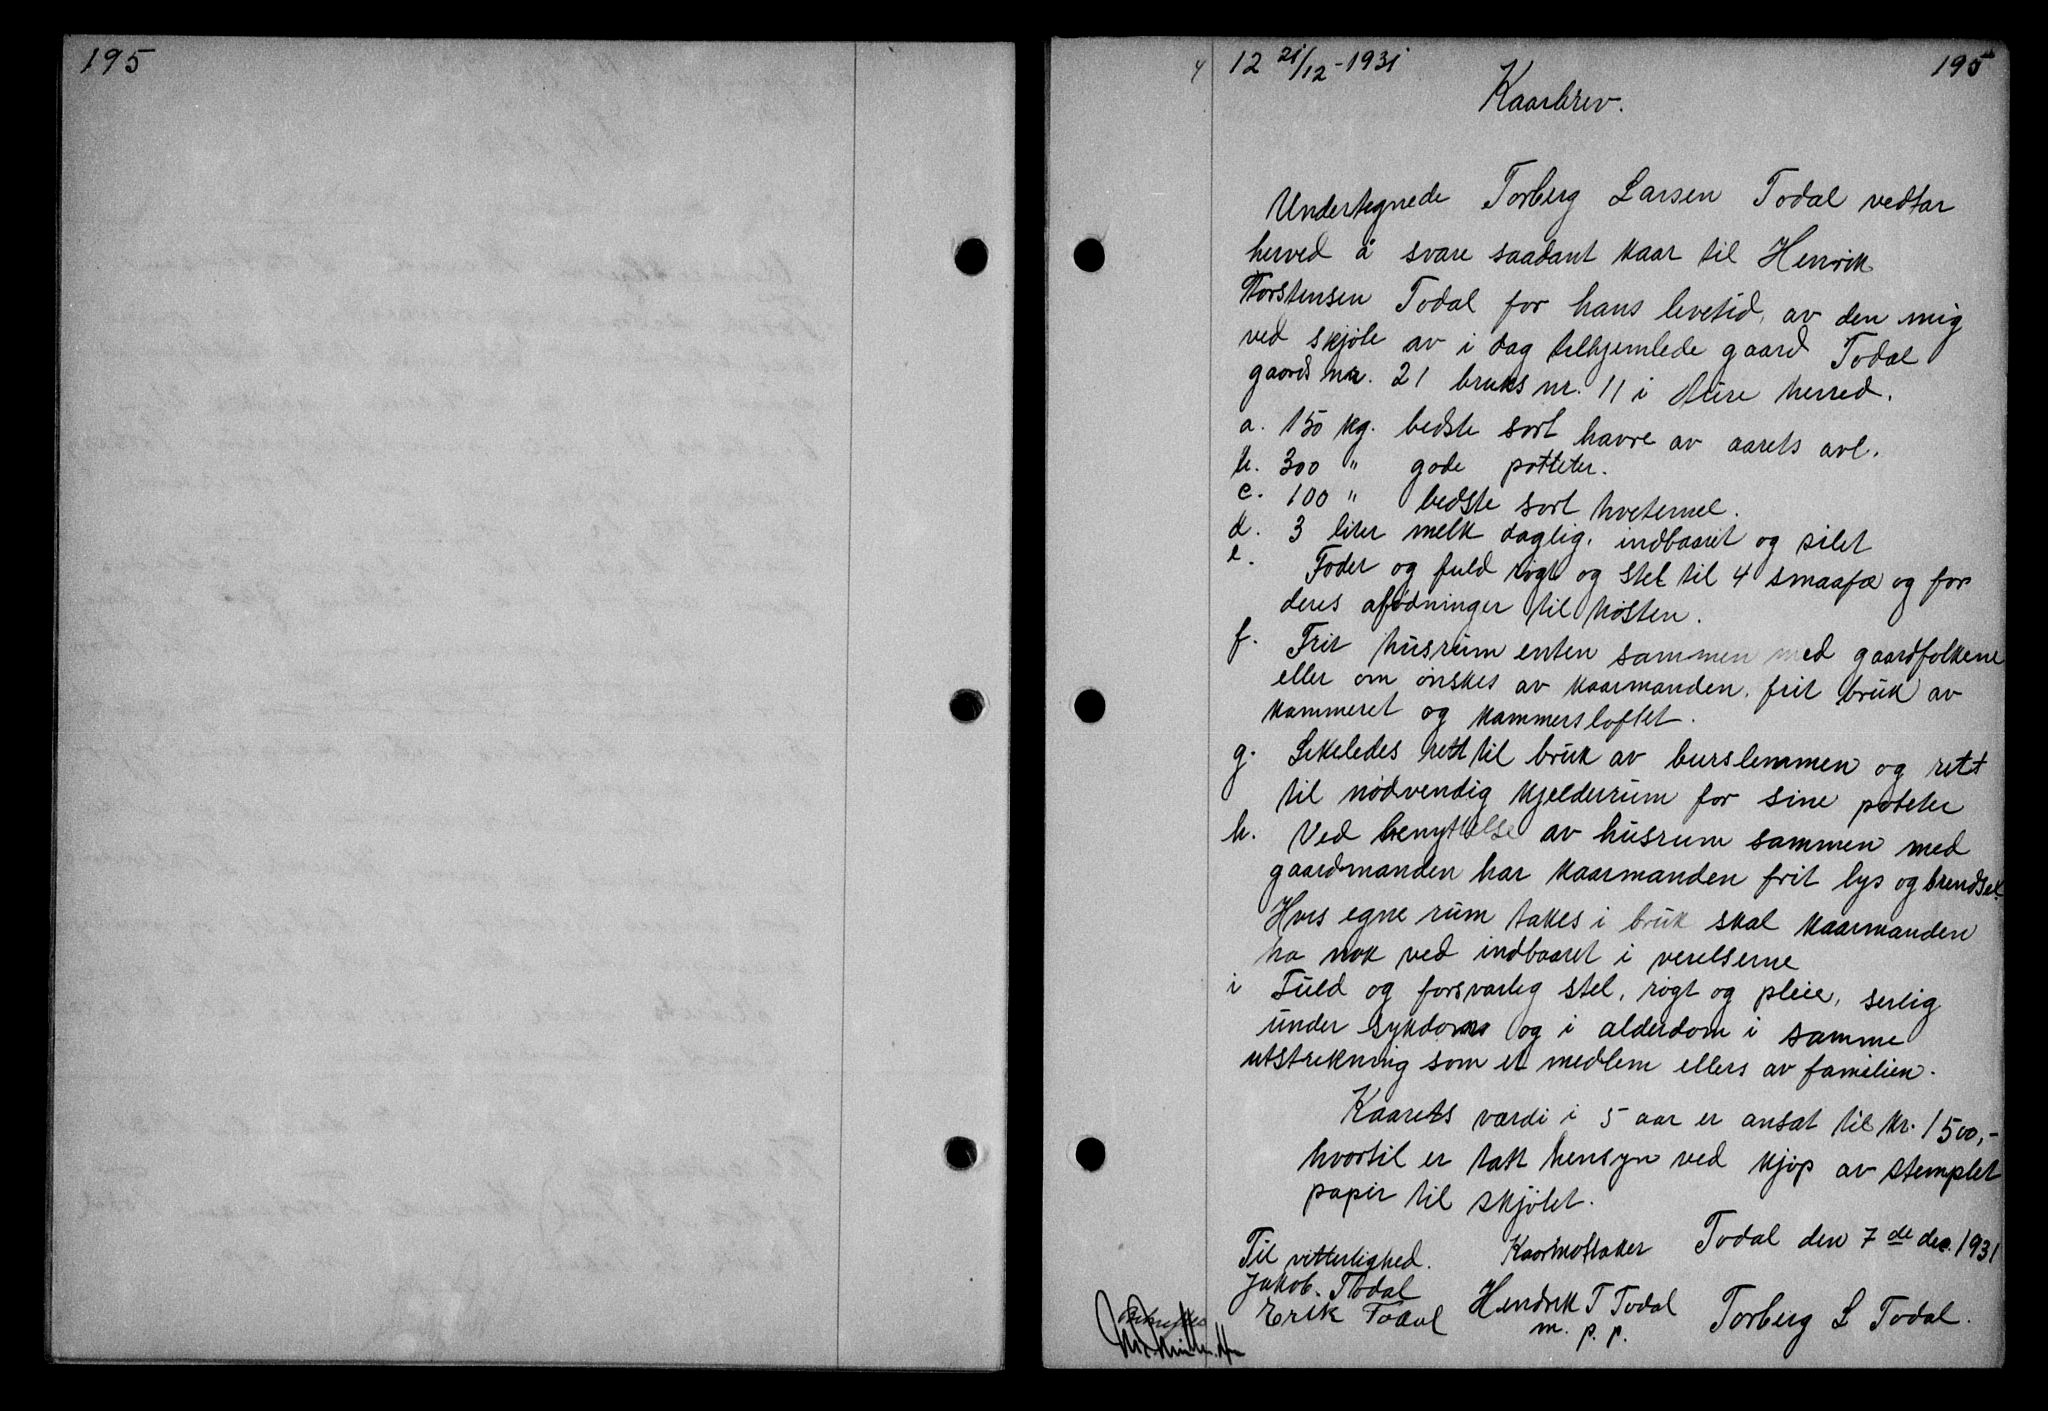 195
4 12 21/12-1931 195
Kaarbrev.
Undertegnede Torberg Larsen Todal vedtar
herved å svare saadant kaar til Henrik
Torstensen Todal for hans levetid, av den mig
ved skjöte av i dag tilhjemlede gaard Todal
gaards nr. 21 bruks nr. 11 i Aure herred.
a. 150 kg. bedste sort havre av aarets avl.
b. 300 " gode potteter.
c. 100 " bedste sort hvetemel.
d. 3 liter melk daglig, indbaaret og silet
e. Foder og fuld røgt og stel til 4 smaafæ og for
deres afødninger til høsten.
f. Frit husrum enten sammen med gaardfolkene
eller om ønskes av kaarmanden, frit bruk av
kammeret og kammersloftet.
g. Likeledes rett til bruk av burslemmen og rett
til nødvendig kjelderrum for sine poteter
h. Ved benyttelse av husrum sammen med
gaardmanden har kaarmanden frit lys og brendsel.
Hvis egne rum takes i bruk skal kaarmanden
ha nok ved indbaaret i verelserne
i Fuld og forsvarlig stel, røgt og pleie, serlig
under sykdoms og i alderdom i samme
utstrekning som et medlem ellers av familien.
Kaarets værdi i 5 aar er ansat til kr. 1500,-
hvortil er tatt hensyn ved kjöp av stemplet
papir til skjötet.
Todal den 7de dec. 1931
Til vitterlighed. Kaarmottaker
Jakob. Todal Hendrik T Todal Torberg L Todal.
Erik Todal m. p. p.